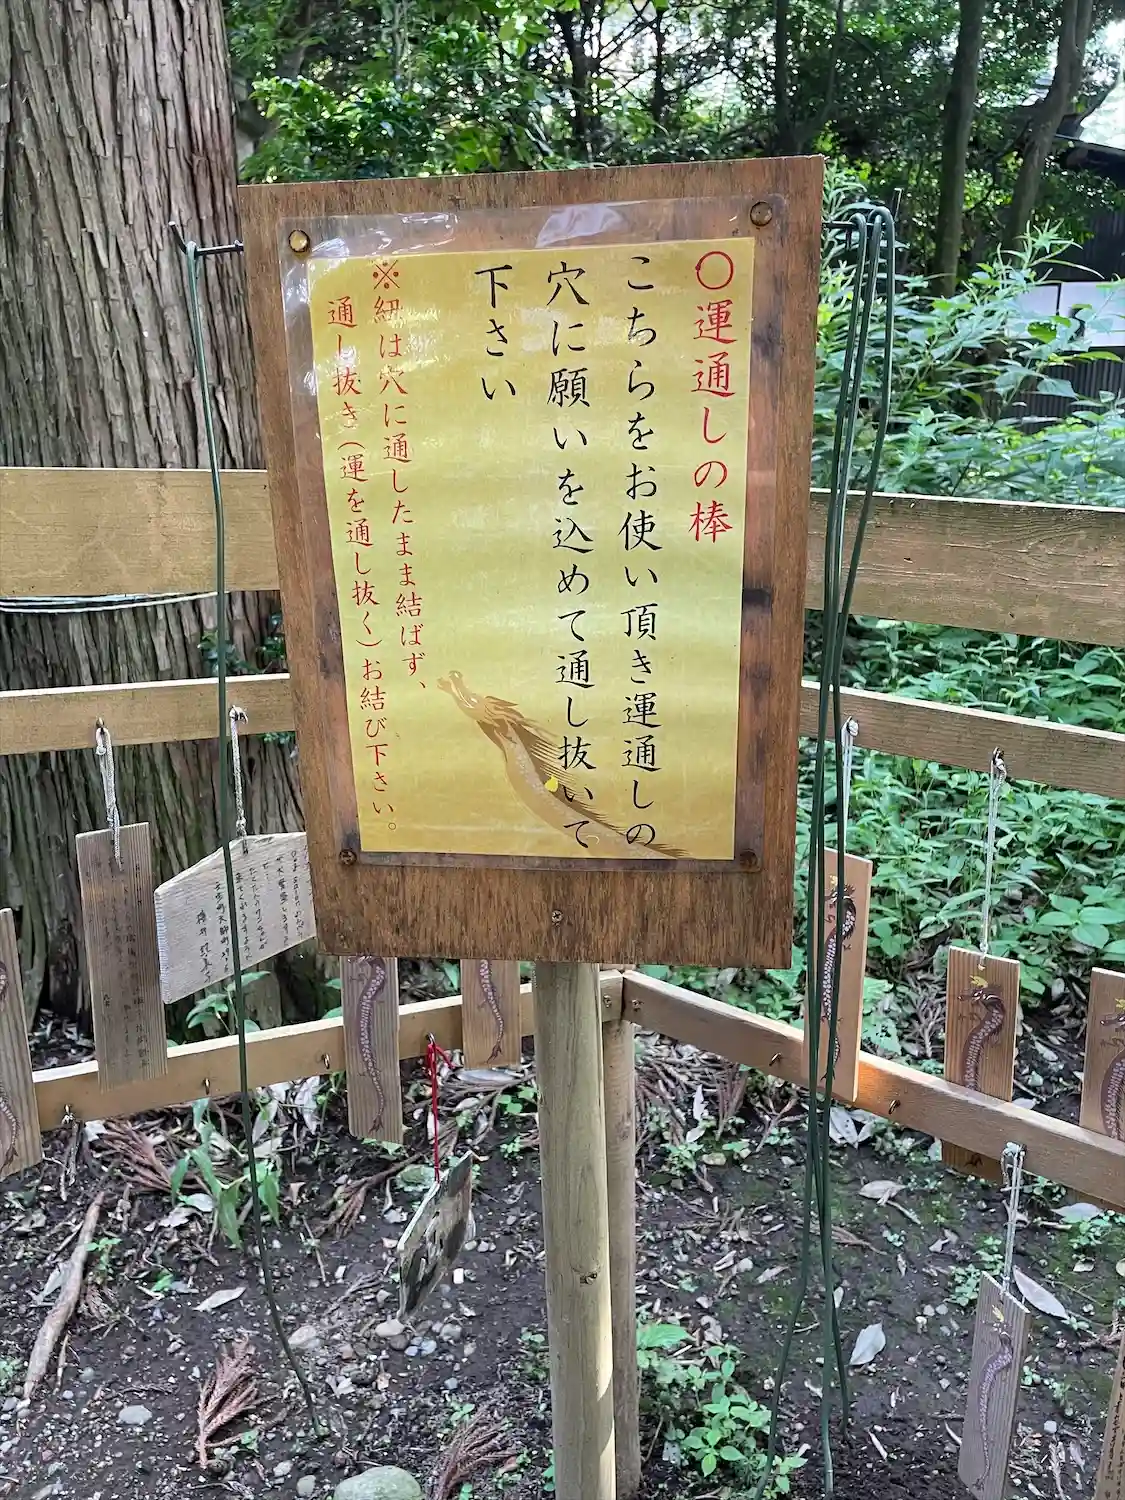 〇運通しの棒
こちらをお使い頂き運通しの
穴に願いを込めて通し抜いて
下さい
※紐は穴に通したまま結ばず、
通し抜き（運を通し抜く）お結び下さい。